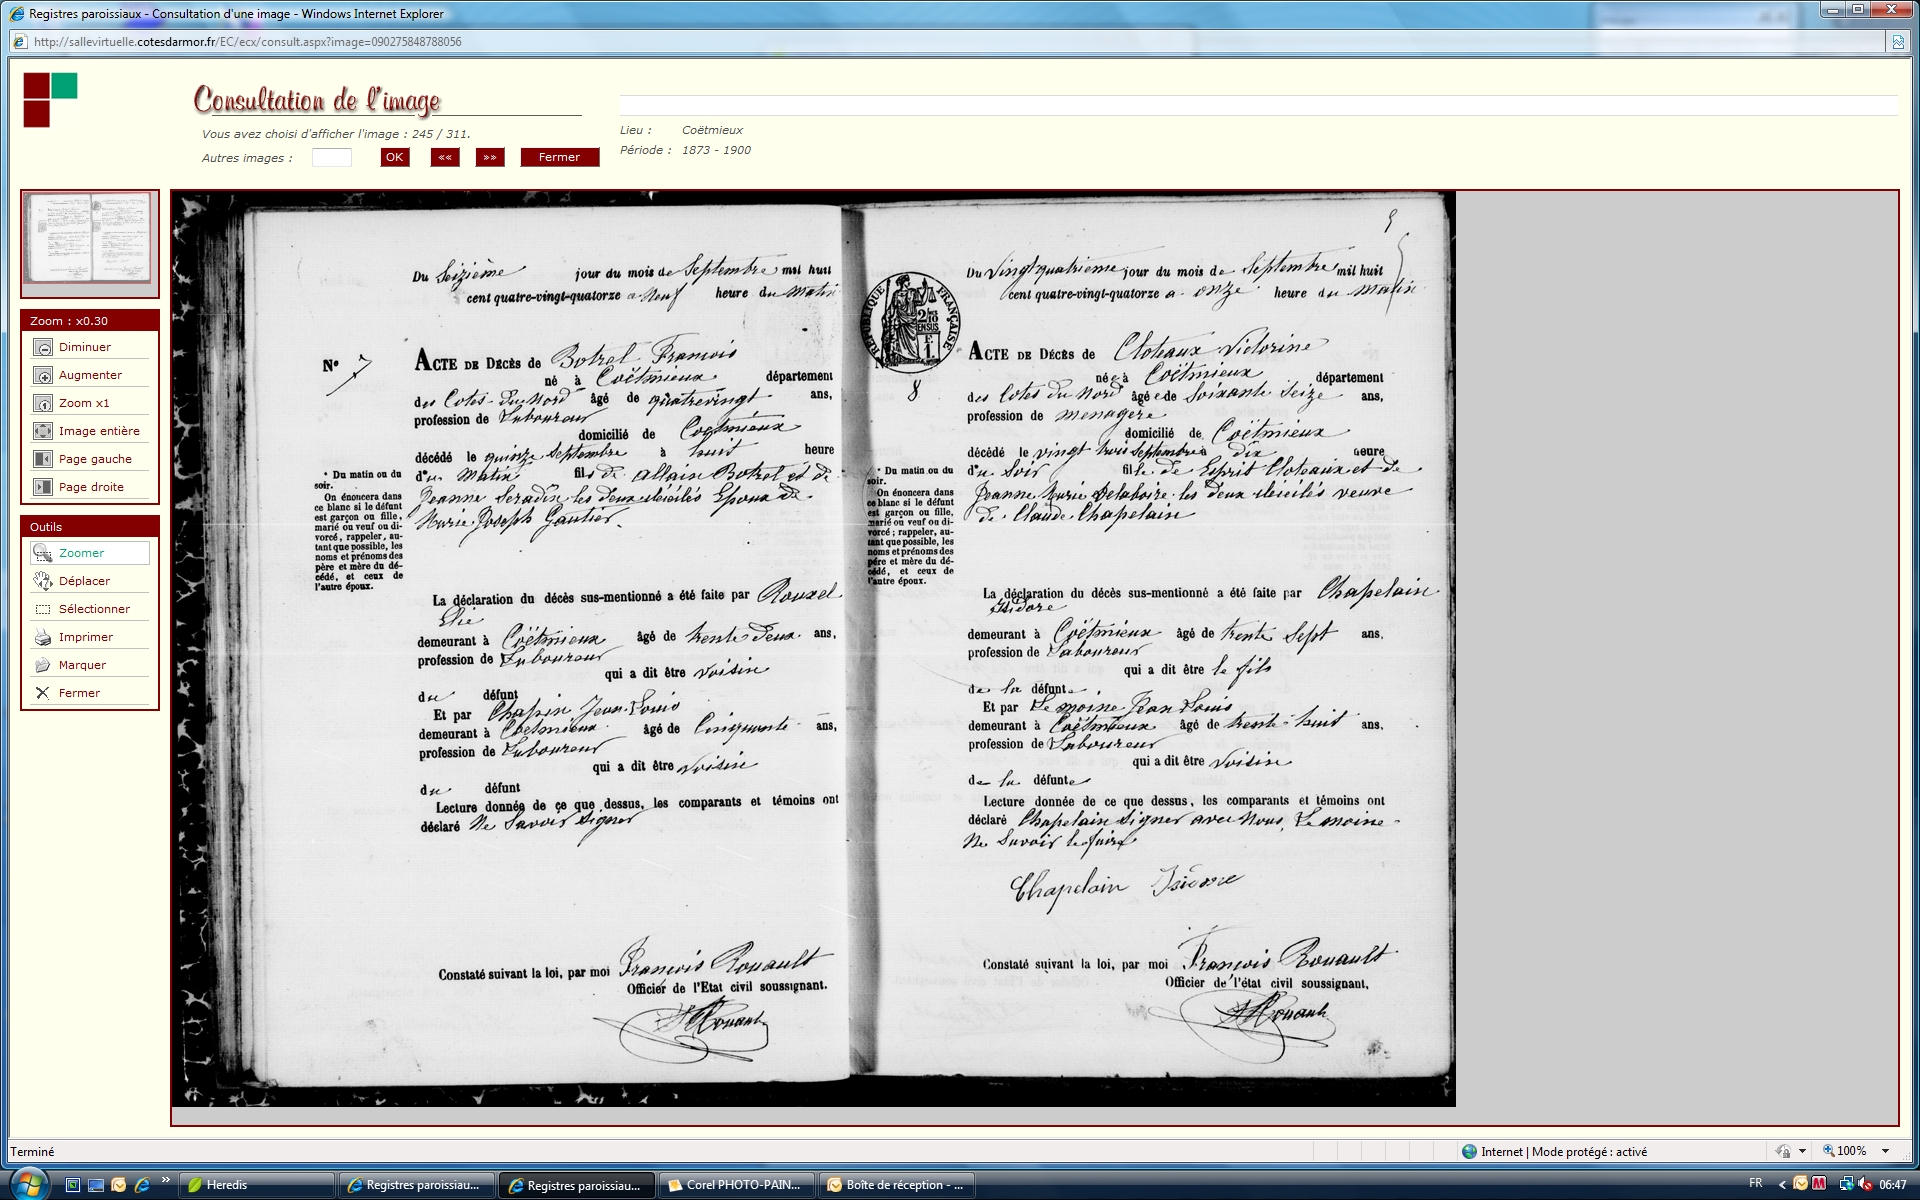 Registres paroissiaux - Consultation d'une image - Windows Internet Explorer
http://sallevirtuelle.cotesdarmor.fr/EC/ecx/consult.aspx?image=090275848788056
Consultation de l'image
Vous avez choisi d'afficher l'image : 245 / 311.
Autres images :
OK
««
»»
Fermer
Lieu : Coëtmieux
Période : 1873 - 1900
Zoom : x0.30
Diminuer
Augmenter
Zoom x1
Image entière
Page gauche
Page droite
Outils
Zoomer
Déplacer
Sélectionner
Imprimer
Marquer
Fermer
Du Seizième jour du mois de Septembre mil huit
cent quatre-vingt-quatorze a Neuf heure du Matin
N° 7
ACTE DE DÉCÈS de Botrel François
né à Coëtmieux département
des Cotes-du-Nord âgé de quatrevingt ans,
profession de Laboureur
domicilié de Coëtmieux
décédé le quinze Septembre à huit heure
du Matin fils de allain Botrel et de
Jeanne Seradin les deux décédés Epoux de
Marie Joseph Gautier.
* Du matin ou du
soir.
On énoncera dans
ce blanc si le défunt
est garçon ou fille,
marié ou veuf ou di-
vorcé, rappeler, au-
tant que possible, les
noms et prénoms des
père et mère du dé-
cédé, et ceux de
l'autre époux.
La déclaration du décès sus-mentionné a été faite par Rouxel
Elie
demeurant à Coëtmieux âgé de trente deux ans,
profession de Laboureur
qui a dit être voisin
du défunt
Et par Chapin Jean-Louis
demeurant à Coëtmieux âgé de Cinquante ans,
profession de Laboureur
qui a dit être voisin
du défunt
Lecture donnée de ce que dessus, les comparants et témoins ont
déclaré Ne Savoir Signer
Constaté suivant la loi, par moi François Rouault
Officier de l'Etat civil soussignant.
Rouault
5
Du Vingt quatrieme jour du mois de Septembre mil huit
cent quatre-vingt-quatorze a onze heure du Matin
RÉPUBLIQUE FRANÇAISE
2/10
EN SUS
1 F.
8
ACTE DE DÉCÈS de Cloteaux Victorine
née à Coëtmieux département
des Cotes du Nord âgée de Soixante Seize ans,
profession de menagère
domicilié de Coëtmieux
décédé le vingt trois Septembre à dix heure
du Soir fille de Esprit Cloteaux et de
Jeanne Marie Delaboire les deux décédés veuve
de Claude Chapelain
* Du matin ou du
soir.
On énoncera dans
ce blanc si le défunt
est garçon ou fille,
marié ou veuf ou di-
vorcé ; rappeler, au-
tant que possible, les
noms et prénoms des
père et mère du dé-
cédé, et ceux de
l'autre époux.
La déclaration du décès sus-mentionné a été faite par Chapelain
Isidore
demeurant à Coëtmieux âgé de trente Sept ans,
profession de Laboureur
qui a dit être le fils
de la défunte
Et par Le moine Jean Louis
demeurant à Coëtmieux âgé de trente-huit ans,
profession de Laboureur
qui a dit être voisin
de la défunte
Lecture donnée de ce que dessus, les comparants et témoins ont
déclaré Chapelain Signer avec Nous, Le moine
Ne Savoir le faire
Chapelain Isidore
Constaté suivant la loi, par moi François Rouault
Officier de l'état civil soussignant,
Rouault
Terminé
Internet | Mode protégé : activé
100%
Heredis
Registres paroissiau...
Registres paroissiau...
Corel PHOTO-PAIN...
Boîte de réception - ...
FR
06:47